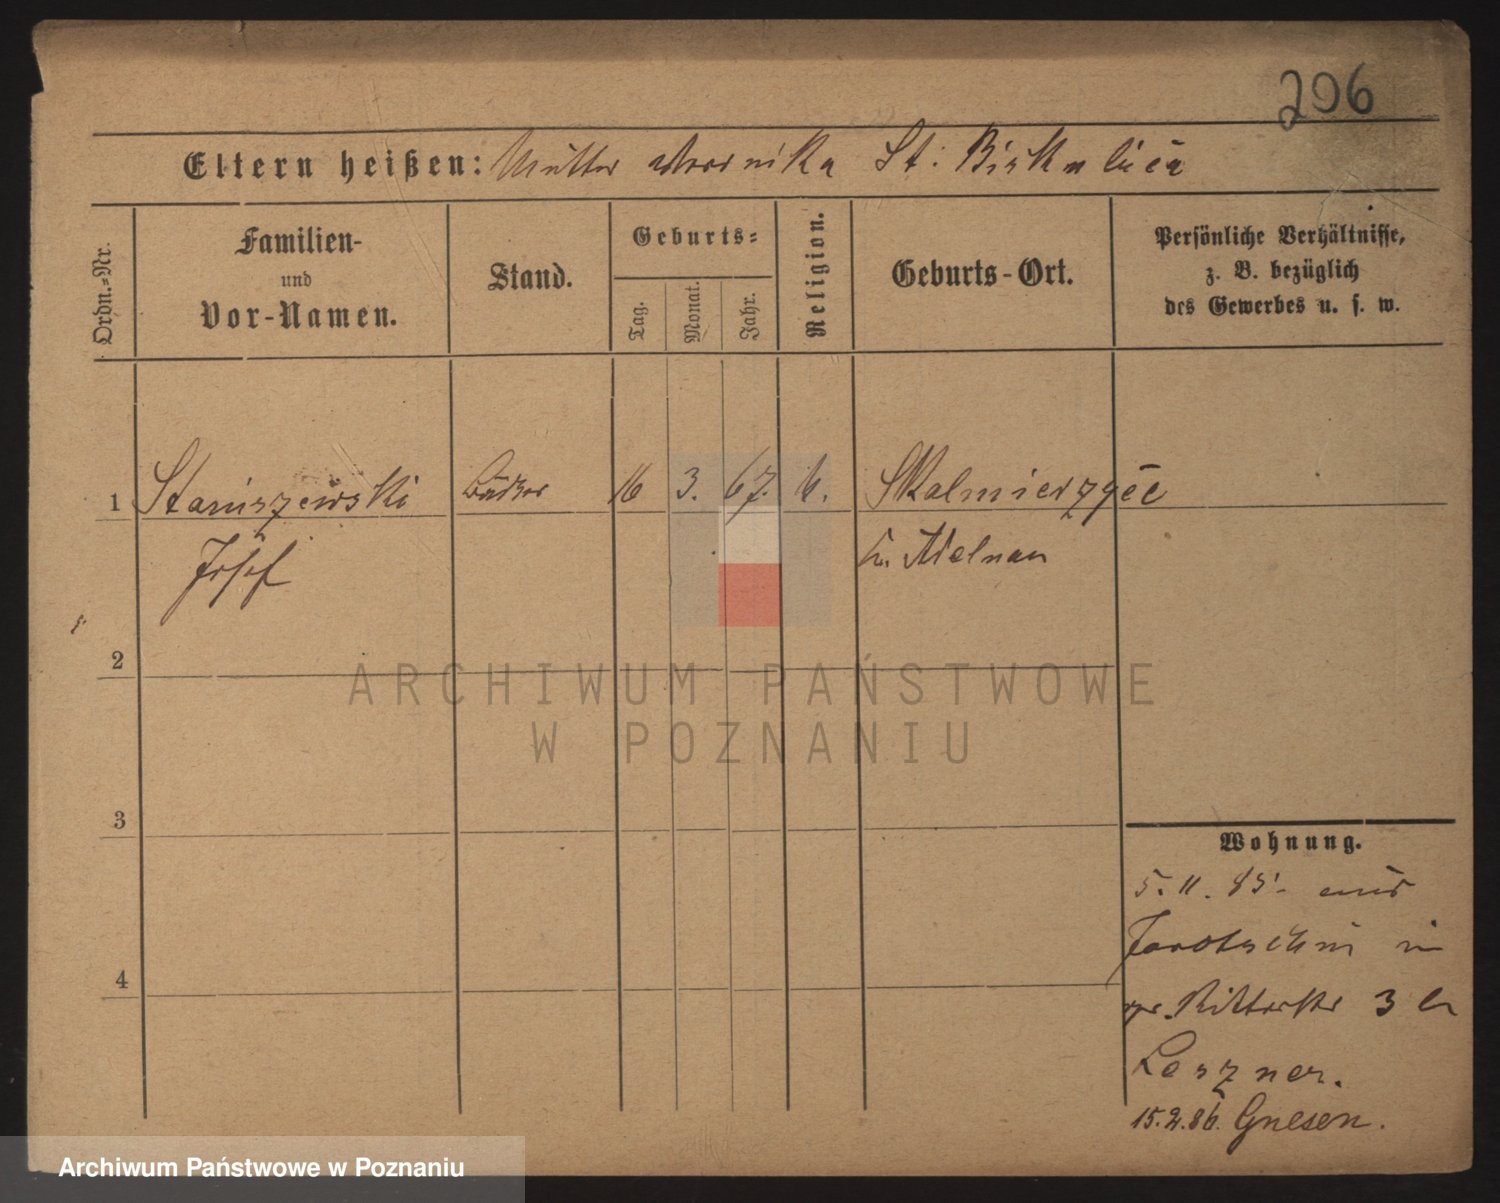 296
Eltern heißen: Mutter Weronika St:
Ordn.=Nr.
Familien-
und
Vor-Namen.
Stand.
Geburts=
Tag.
Monat.
Jahr.
Religion.
Geburts-Ort.
Persönliche Verhältnisse,
z. B. bezüglich
des Gewerbes u. s. w.
1 Staniszewski Bäcker 16 3. 67. k. Skalmierzyce
Josef Kr. Adelnau
2
3
4
Wohnung.
5. 11. 85. aus
Jarotschin in
Ritterstr 3 b
Leszner.
15.2.86. Gnesen.
ARCHIWUM PAŃSTWOWE
W POZNANIU
Archiwum Państwowe w Poznaniu